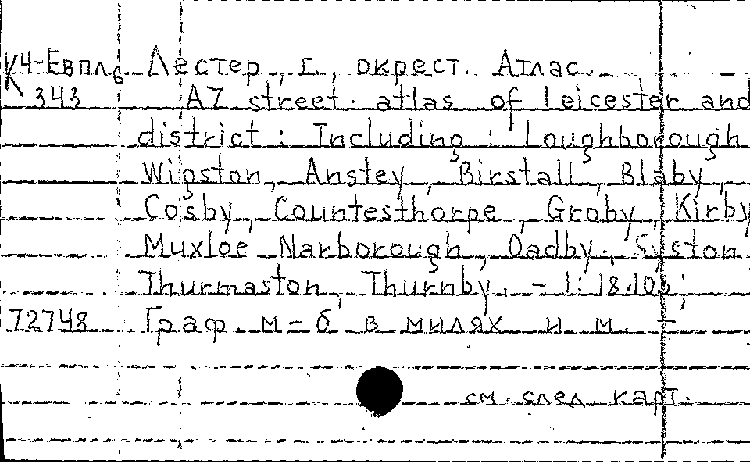 К4-Евпл6 Лестер, г., окрест. Атлас.
343 AZ street atlas of Leicester and
district: Including: Loughborough
Wigston, Anstey, Birstall, Blaby,
Cosby, Countesthorpe, Groby, Kirby
Muxloe Narborough, Oadby, Syston
Thurmaston, Thurnby. - 1:18.103;
72748 Граф. м-б в милях и м. -
см. след. карт.